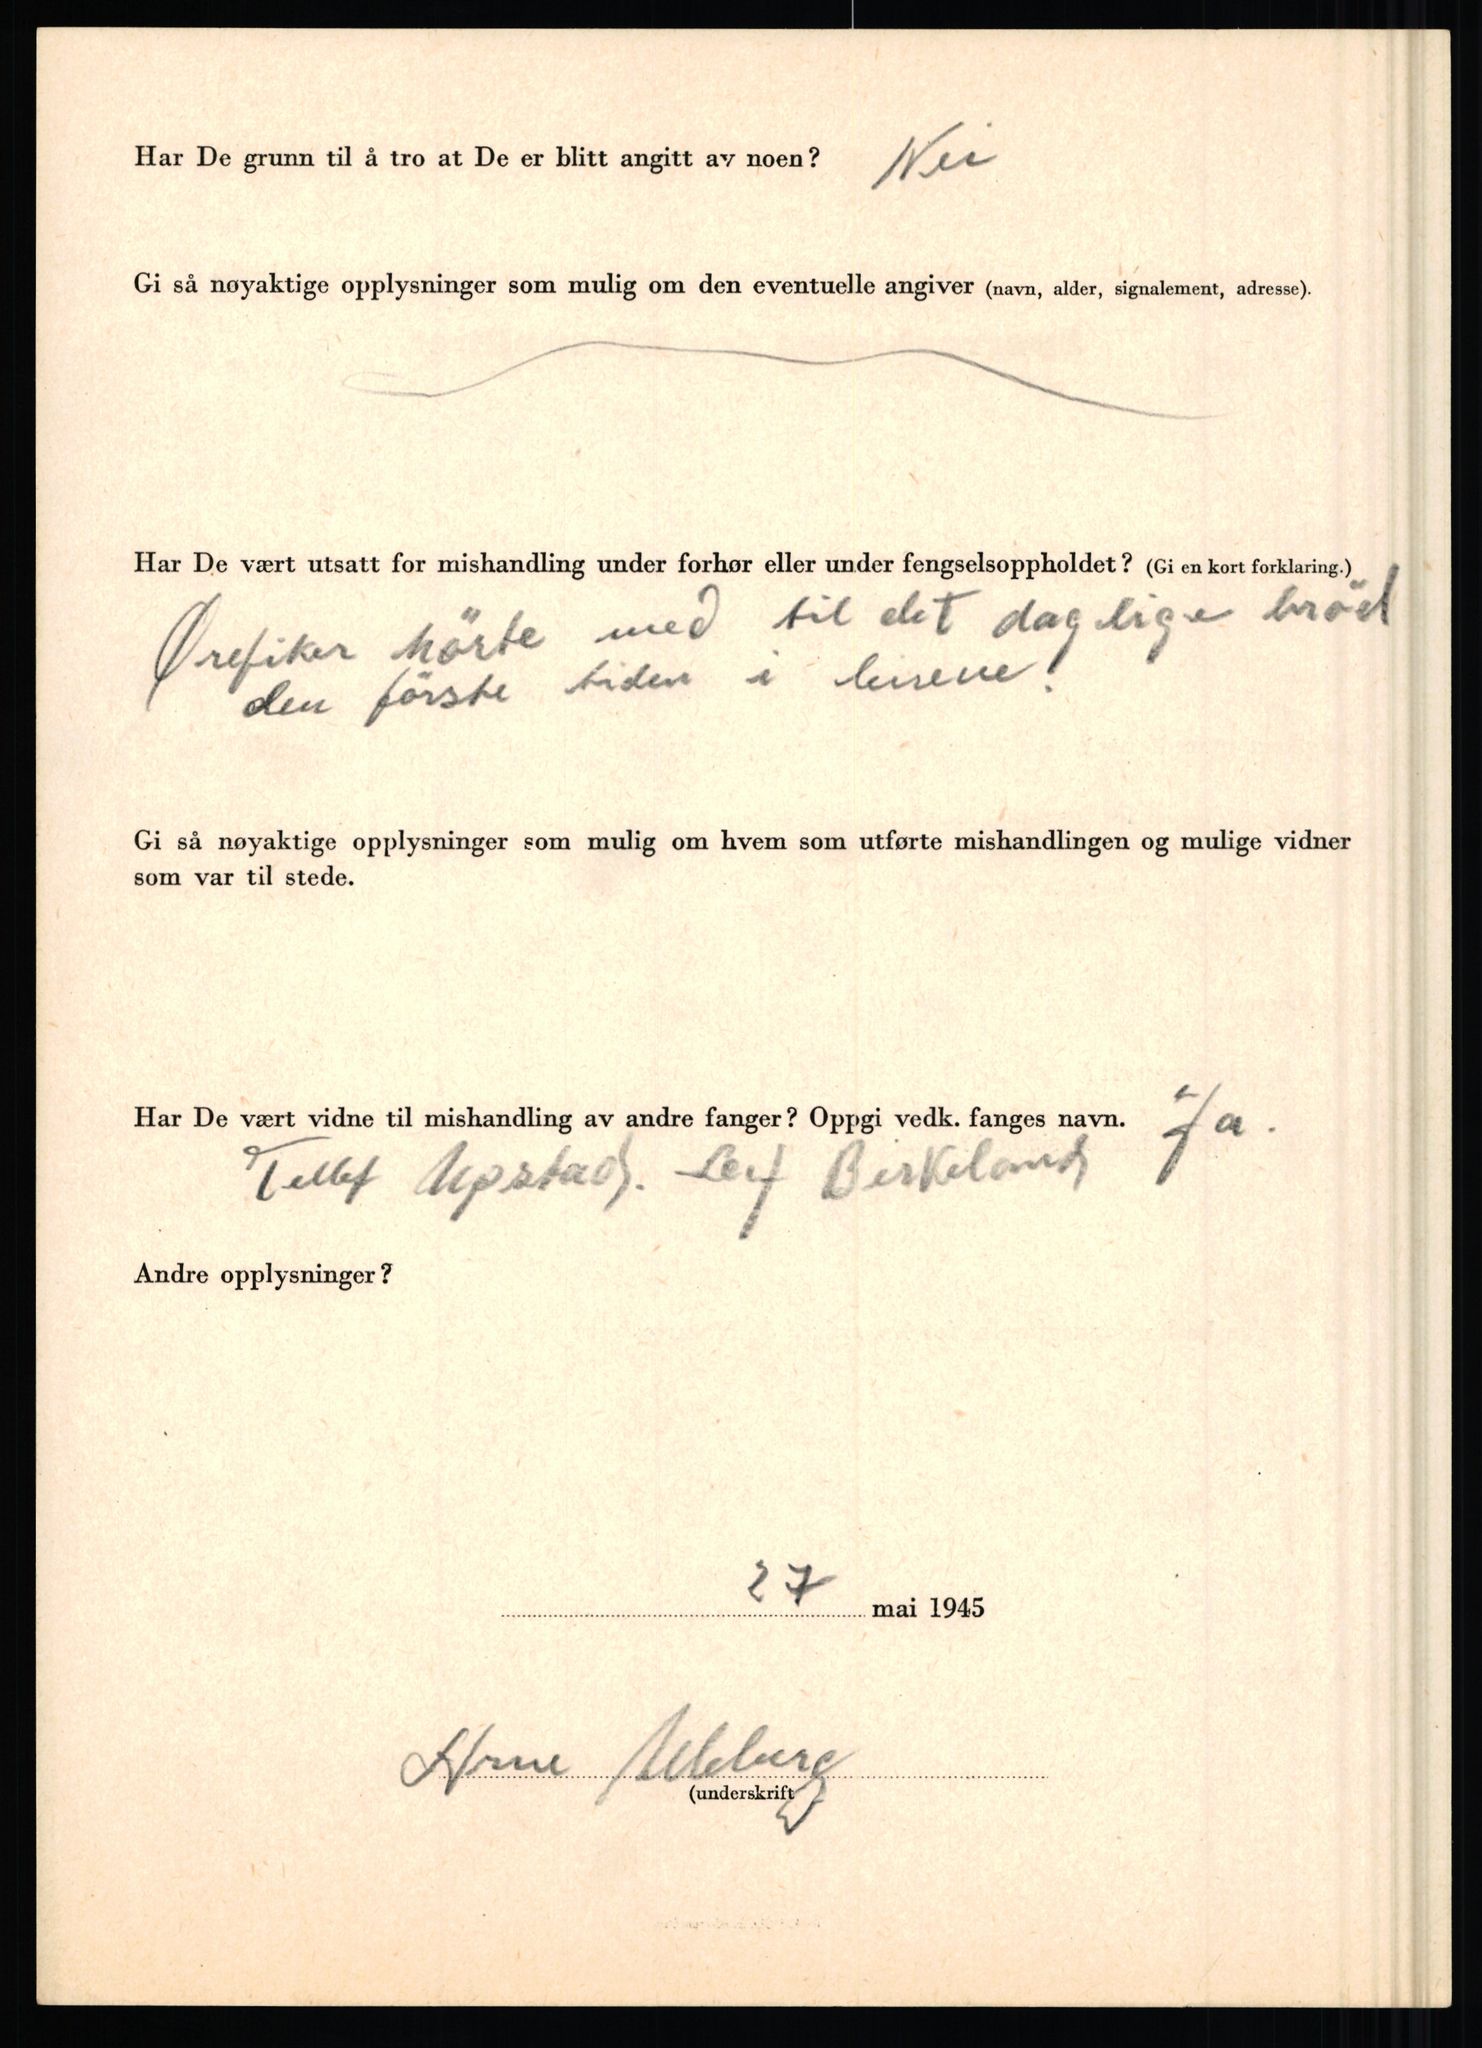 Har De grunn til å tro at De er blitt angitt av noen? Nei
Gi så nøyaktige opplysninger som mulig om den eventuelle angiver (navn, alder, signalement, adresse).
Har De vært utsatt for mishandling under forhør eller under fengselsoppholdet? (Gi en kort forklaring.)
Ørefiker hörte med til det daglige bröd
den förste tiden i leirene!
Gi så nøyaktige opplysninger som mulig om hvem som utførte mishandlingen og mulige vidner
som var til stede.
Har De vært vidne til mishandling av andre fanger? Oppgi vedk. fanges navn. Ja.
Tellef Upstad. Leif Birkeland
Andre opplysninger?
27 mai 1945
Arne
(underskrift)